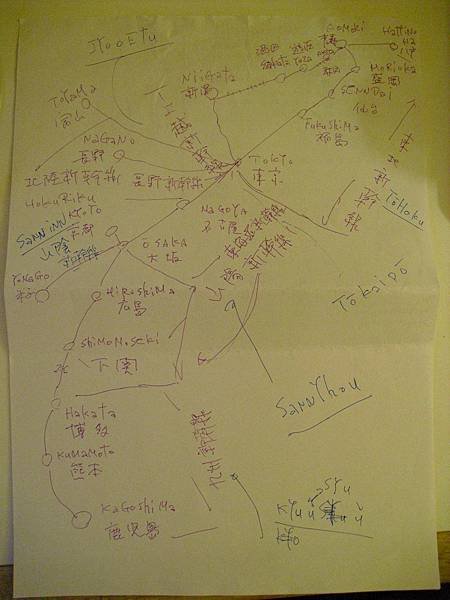 JYOOETU
HattiNo
Ha
AOMORI
NiiGata
新潟
酒田
MoRioKa
盛岡
SENNDai
仙台
ToYaMa
富山
FUKUSHiMa
福島
上越新幹線
NaGaNo
長野
ToKYo
東京
東北新幹線
北陸新幹線
長野新幹線
HoKuRiKu
ToHoKu
SaNNiNN
山陰
新幹線
KYoTo
京都
NaGoYa
名古屋
東海道新幹線
山陽新幹線
YoNaGo
米子
OSAKA
大坂
HiRoSHiMa
広島
Tōkaidō
SHiMoNoSeki
下関
SaNNYhou
Hakata
博多
九州新幹線
KuMaMoto
熊本
SYU
KYuu
KaGoSHiMa
鹿児島